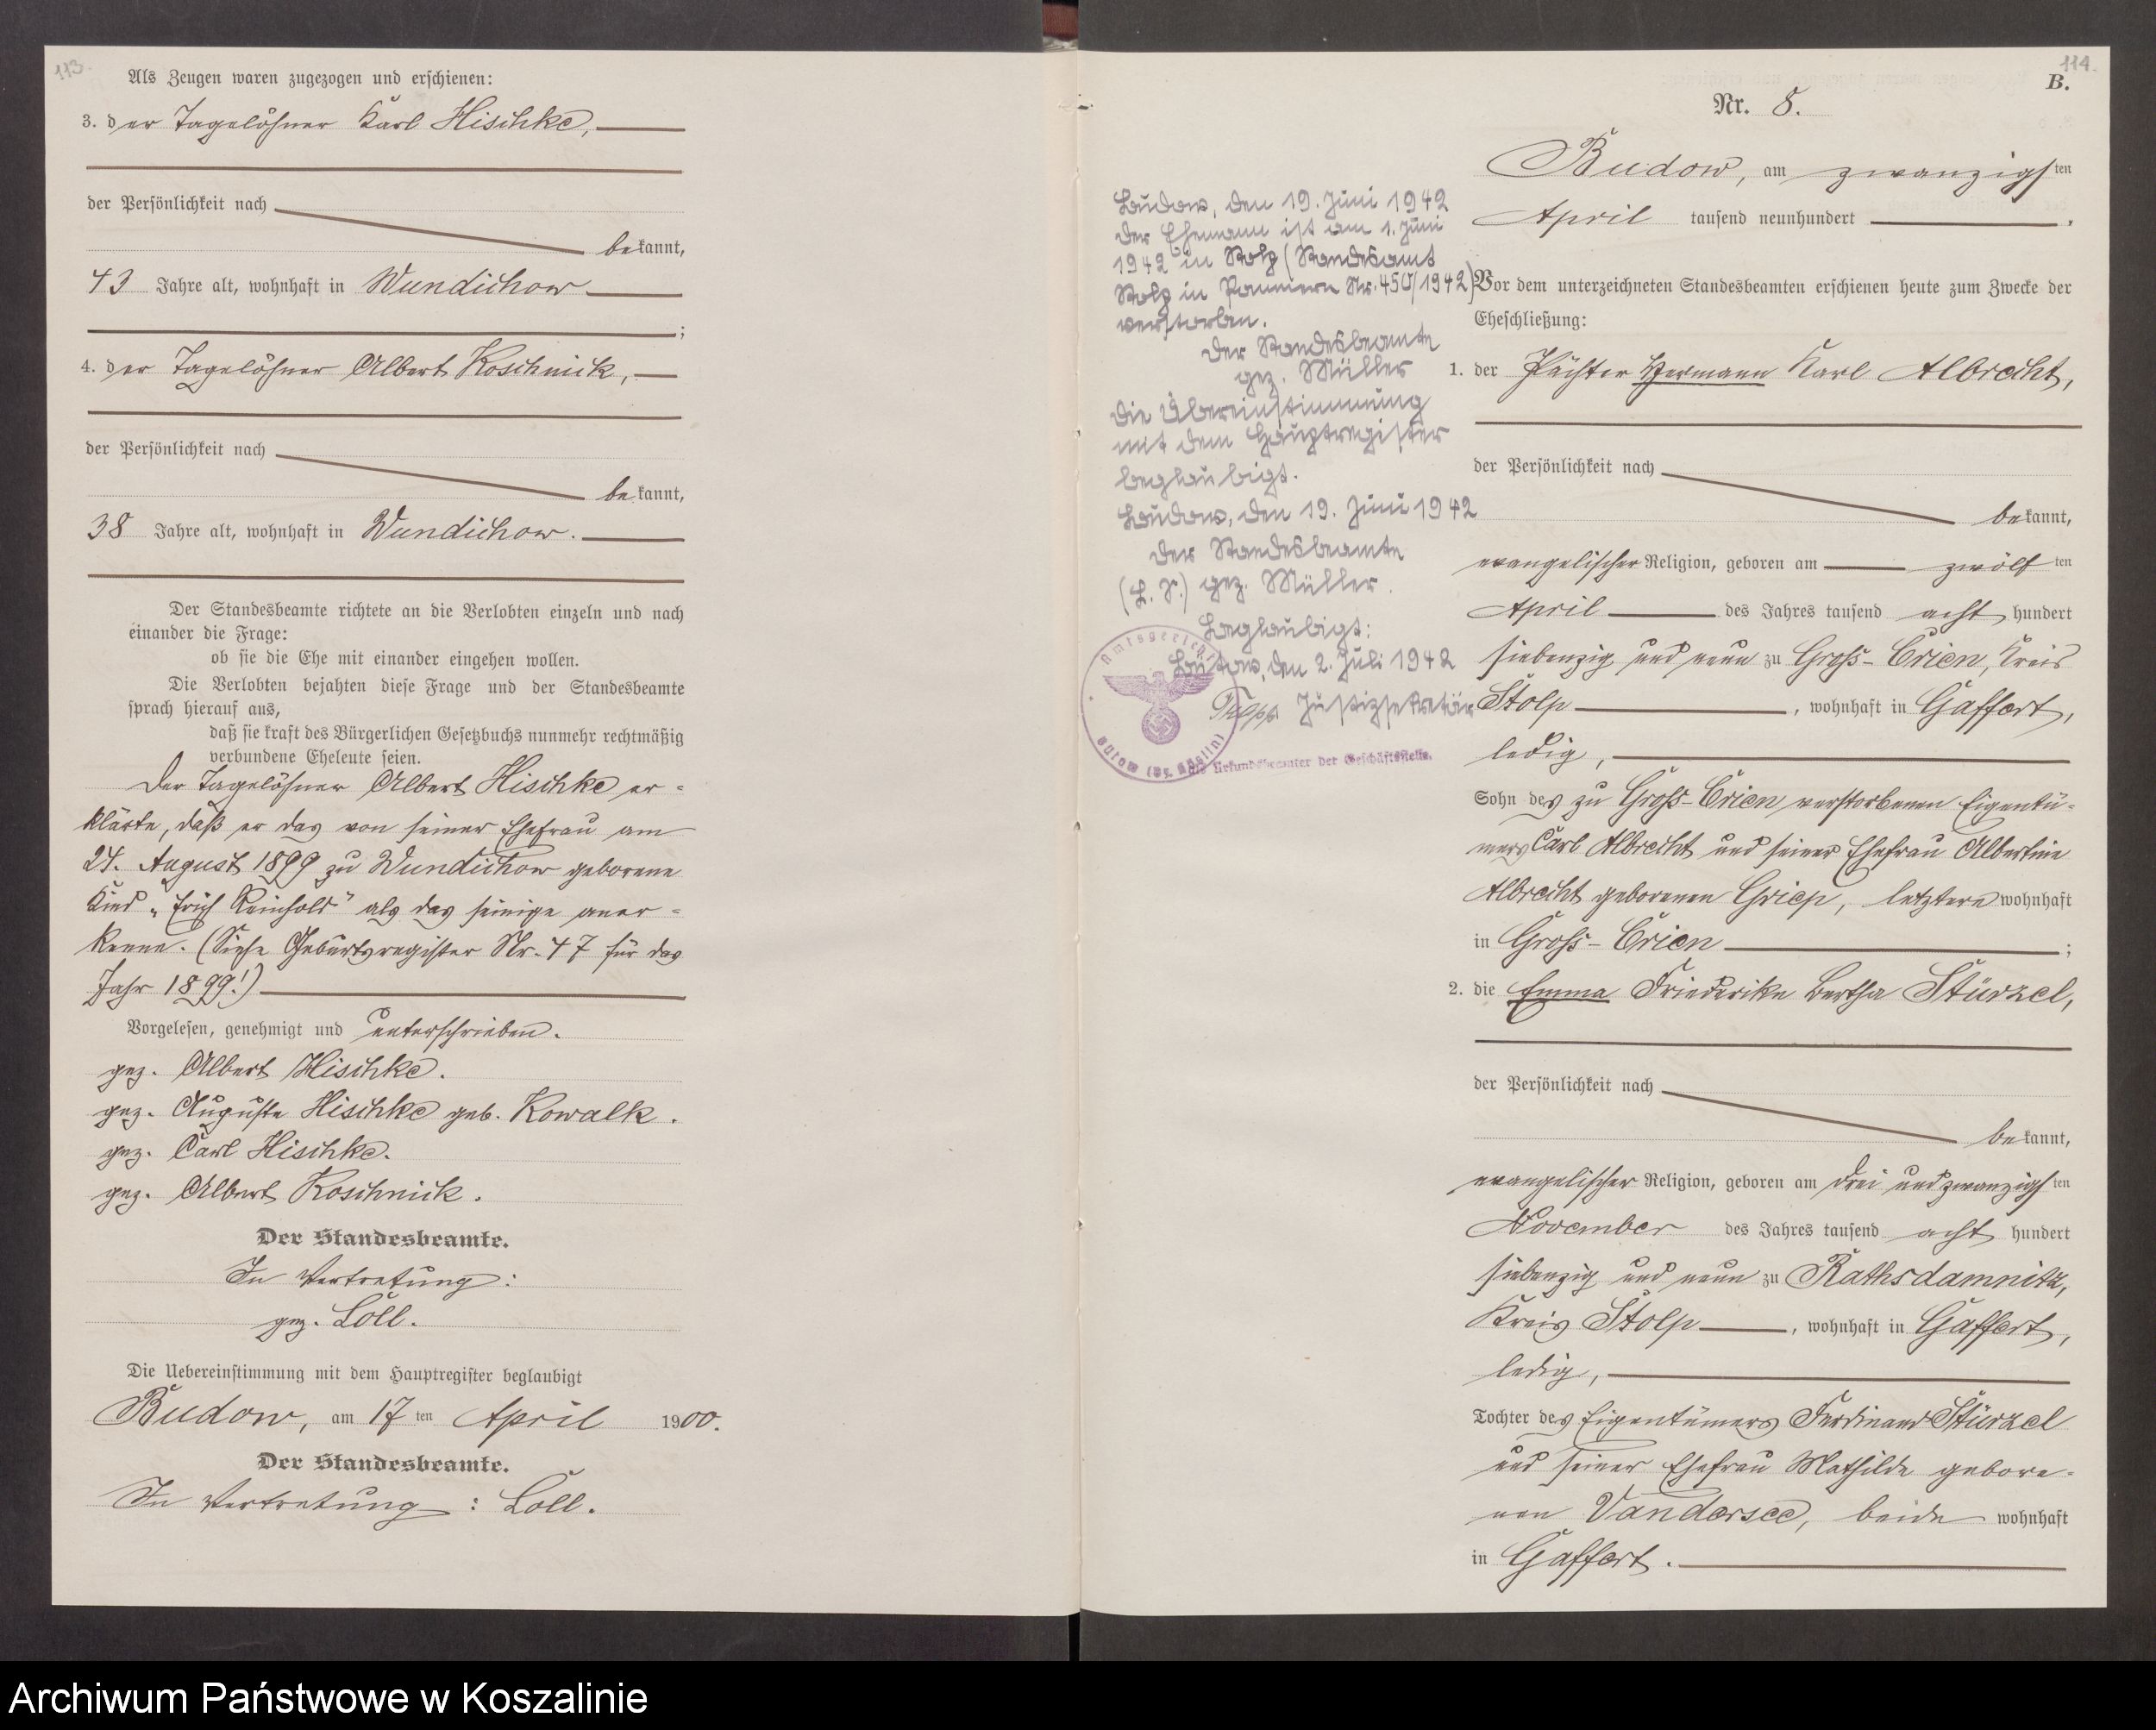 113.
Als Zeugen waren zugezogen und erschienen:
3. der Tagelöhner Karl Hischke,
der Persönlichkeit nach
bekannt,
43 Jahre alt, wohnhaft in Wundichow
;
4. der Tagelöhner Albert Koschnick,
der Persönlichkeit nach
bekannt,
38 Jahre alt, wohnhaft in Wundichow.
Der Standesbeamte richtete an die Verlobten einzeln und nach
einander die Frage:
ob sie die Ehe mit einander eingehen wollen.
Die Verlobten bejahten diese Frage und der Standesbeamte
sprach hierauf aus,
daß sie kraft des Bürgerlichen Gesetzbuchs nunmehr rechtmäßig
verbundene Eheleute seien.
Der Tagelöhner Albert Hischke er-
klärte, daß er das von seiner Ehefrau am
24. August 1899 zu Wundichow geborene
Kind „Erich Reinhold" als das seinige aner-
kenne. (Siehe Geburtsregister Nr. 47 für das
Jahr 1899!)
Vorgelesen, genehmigt und unterschrieben.
gez. Albert Hischke.
gez. Auguste Hischke geb. Kowalk.
gez. Carl Hischke.
gez. Albert Koschnick.
Der Standesbeamte.
In Vertretung:
gez. Loll.
Die Uebereinstimmung mit dem Hauptregister beglaubigt
Budow, am 17ten April 1900.
Der Standesbeamte.
In Vertretung: Loll.
114.
B.
Nr. 8.
Budow, am zwanzigsten
April tausend neunhundert .
Vor dem unterzeichneten Standesbeamten erschienen heute zum Zwecke der
Eheschließung:
1. der Pächter Hermann Karl Albrecht,
der Persönlichkeit nach
bekannt,
evangelischer Religion, geboren am zwölften
April des Jahres tausend acht hundert
siebenzig und neun zu Gross-Crien, Kreis
Stolp, wohnhaft in Gaffert,
ledig,
Sohn des zu Gross-Crien verstorbenen Eigentü-
mers Carl Albrecht und seiner Ehefrau Albertine
Albrecht geborenen Griep, letztere wohnhaft
in Gross-Crien ;
2. die Emma Friederike Bertha Stürzel,
der Persönlichkeit nach
bekannt,
evangelischer Religion, geboren am drei und zwanzigsten
November des Jahres tausend acht hundert
siebenzig und neun zu Rathsdamnitz,
Kreis Stolp, wohnhaft in Gaffert,
ledig,
Tochter des Eigentümers Ferdinand Stürzel
und seiner Ehefrau Mathilde gebore-
nen Vandersee, beide wohnhaft
in Gaffert.
Budow, den 19. Juni 1942
Der Ehemann ist am 1. Juni
1942 in Stolp (Standesamt
Stolp in Pommern Nr. 450/1942)
verstorben.
Der Standesbeamte
gez. Müller
Die Übereinstimmung
mit dem Hauptregister
beglaubigt.
Budow, den 19. Juni 1942
Der Standesbeamte
(L. S.) gez. Müller.
Beglaubigt:
Bütow, den 2. Juli 1942
Justizsekretär
Amtsgericht
Bütow (Bz. Köslin)
als Urkundsbeamter der Geschäftsstelle.
Archiwum Państwowe w Koszalinie